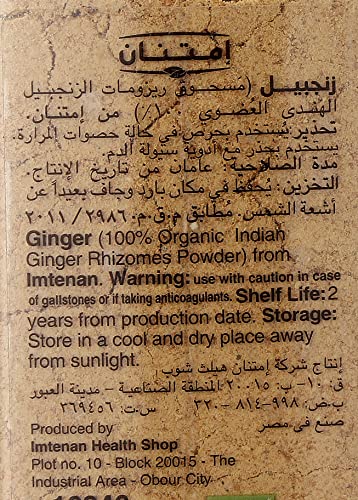 إمتنان
زنجبيل (مسحوق ريزومات الزنجبيل
الهندى العضوي ١٠٠٪) من إمتنان.
تحذير: يستخدم بحرص في حالة حصوات المرارة.
يستخدم بحذر مع أدوية سيولة الدم.
مدة الصلاحية: عامان من تاريخ الإنتاج.
التخزين: تحفظ في مكان بارد وجاف بعيدا عن
أشعة الشمس. مطابق م.ق.م. ٢٩٨٦ / ٢٠١١
Ginger (100% Organic Indian
Ginger Rhizomes Powder) from
Imtenan. Warning: use with caution in case
of gallstones or if taking anticoagulants. Shelf Life: 2
years from production date. Storage:
Store in a cool and dry place away
from sunlight.
إنتاج شركة إمتنان هيلث شوب
ق: ١٠- ب: ٢٠٠١٥ المنطقة الصناعية - مدينة العبور
ب.ض: ٩٩٨-٨١٤-٣٢٠ س.ت: ٣٦٩٤٥٦
صنع في مصر
Produced by
Imtenan Health Shop
Plot no. 10 - Block 20015 - The
Industrial Area - Obour City